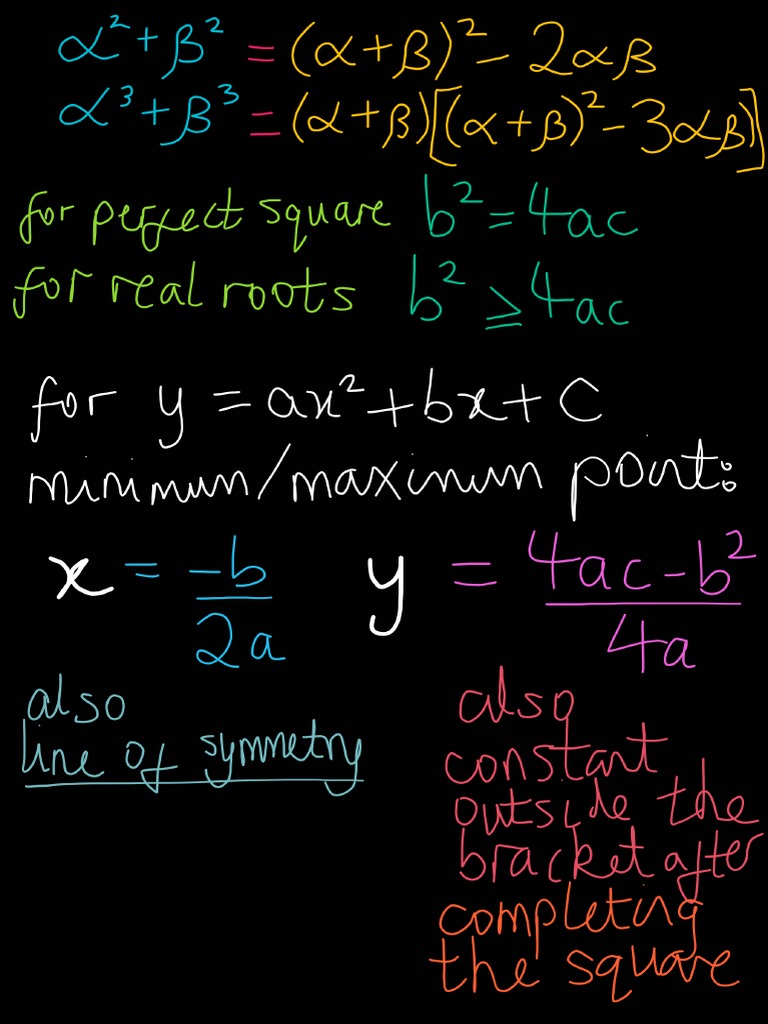 α² + β² = (α+β)² - 2αβ
α³ + β³ = (α+β)[(α+β)² - 3αβ]
for perfect square b² = 4ac
for real roots b² ≥ 4ac
for y = ax² + bx + c
minimum/maximum point:
x = -b/2a y = 4ac - b²/4a
also
line of symmetry
also
constant
outside the
bracket after
completing
the square